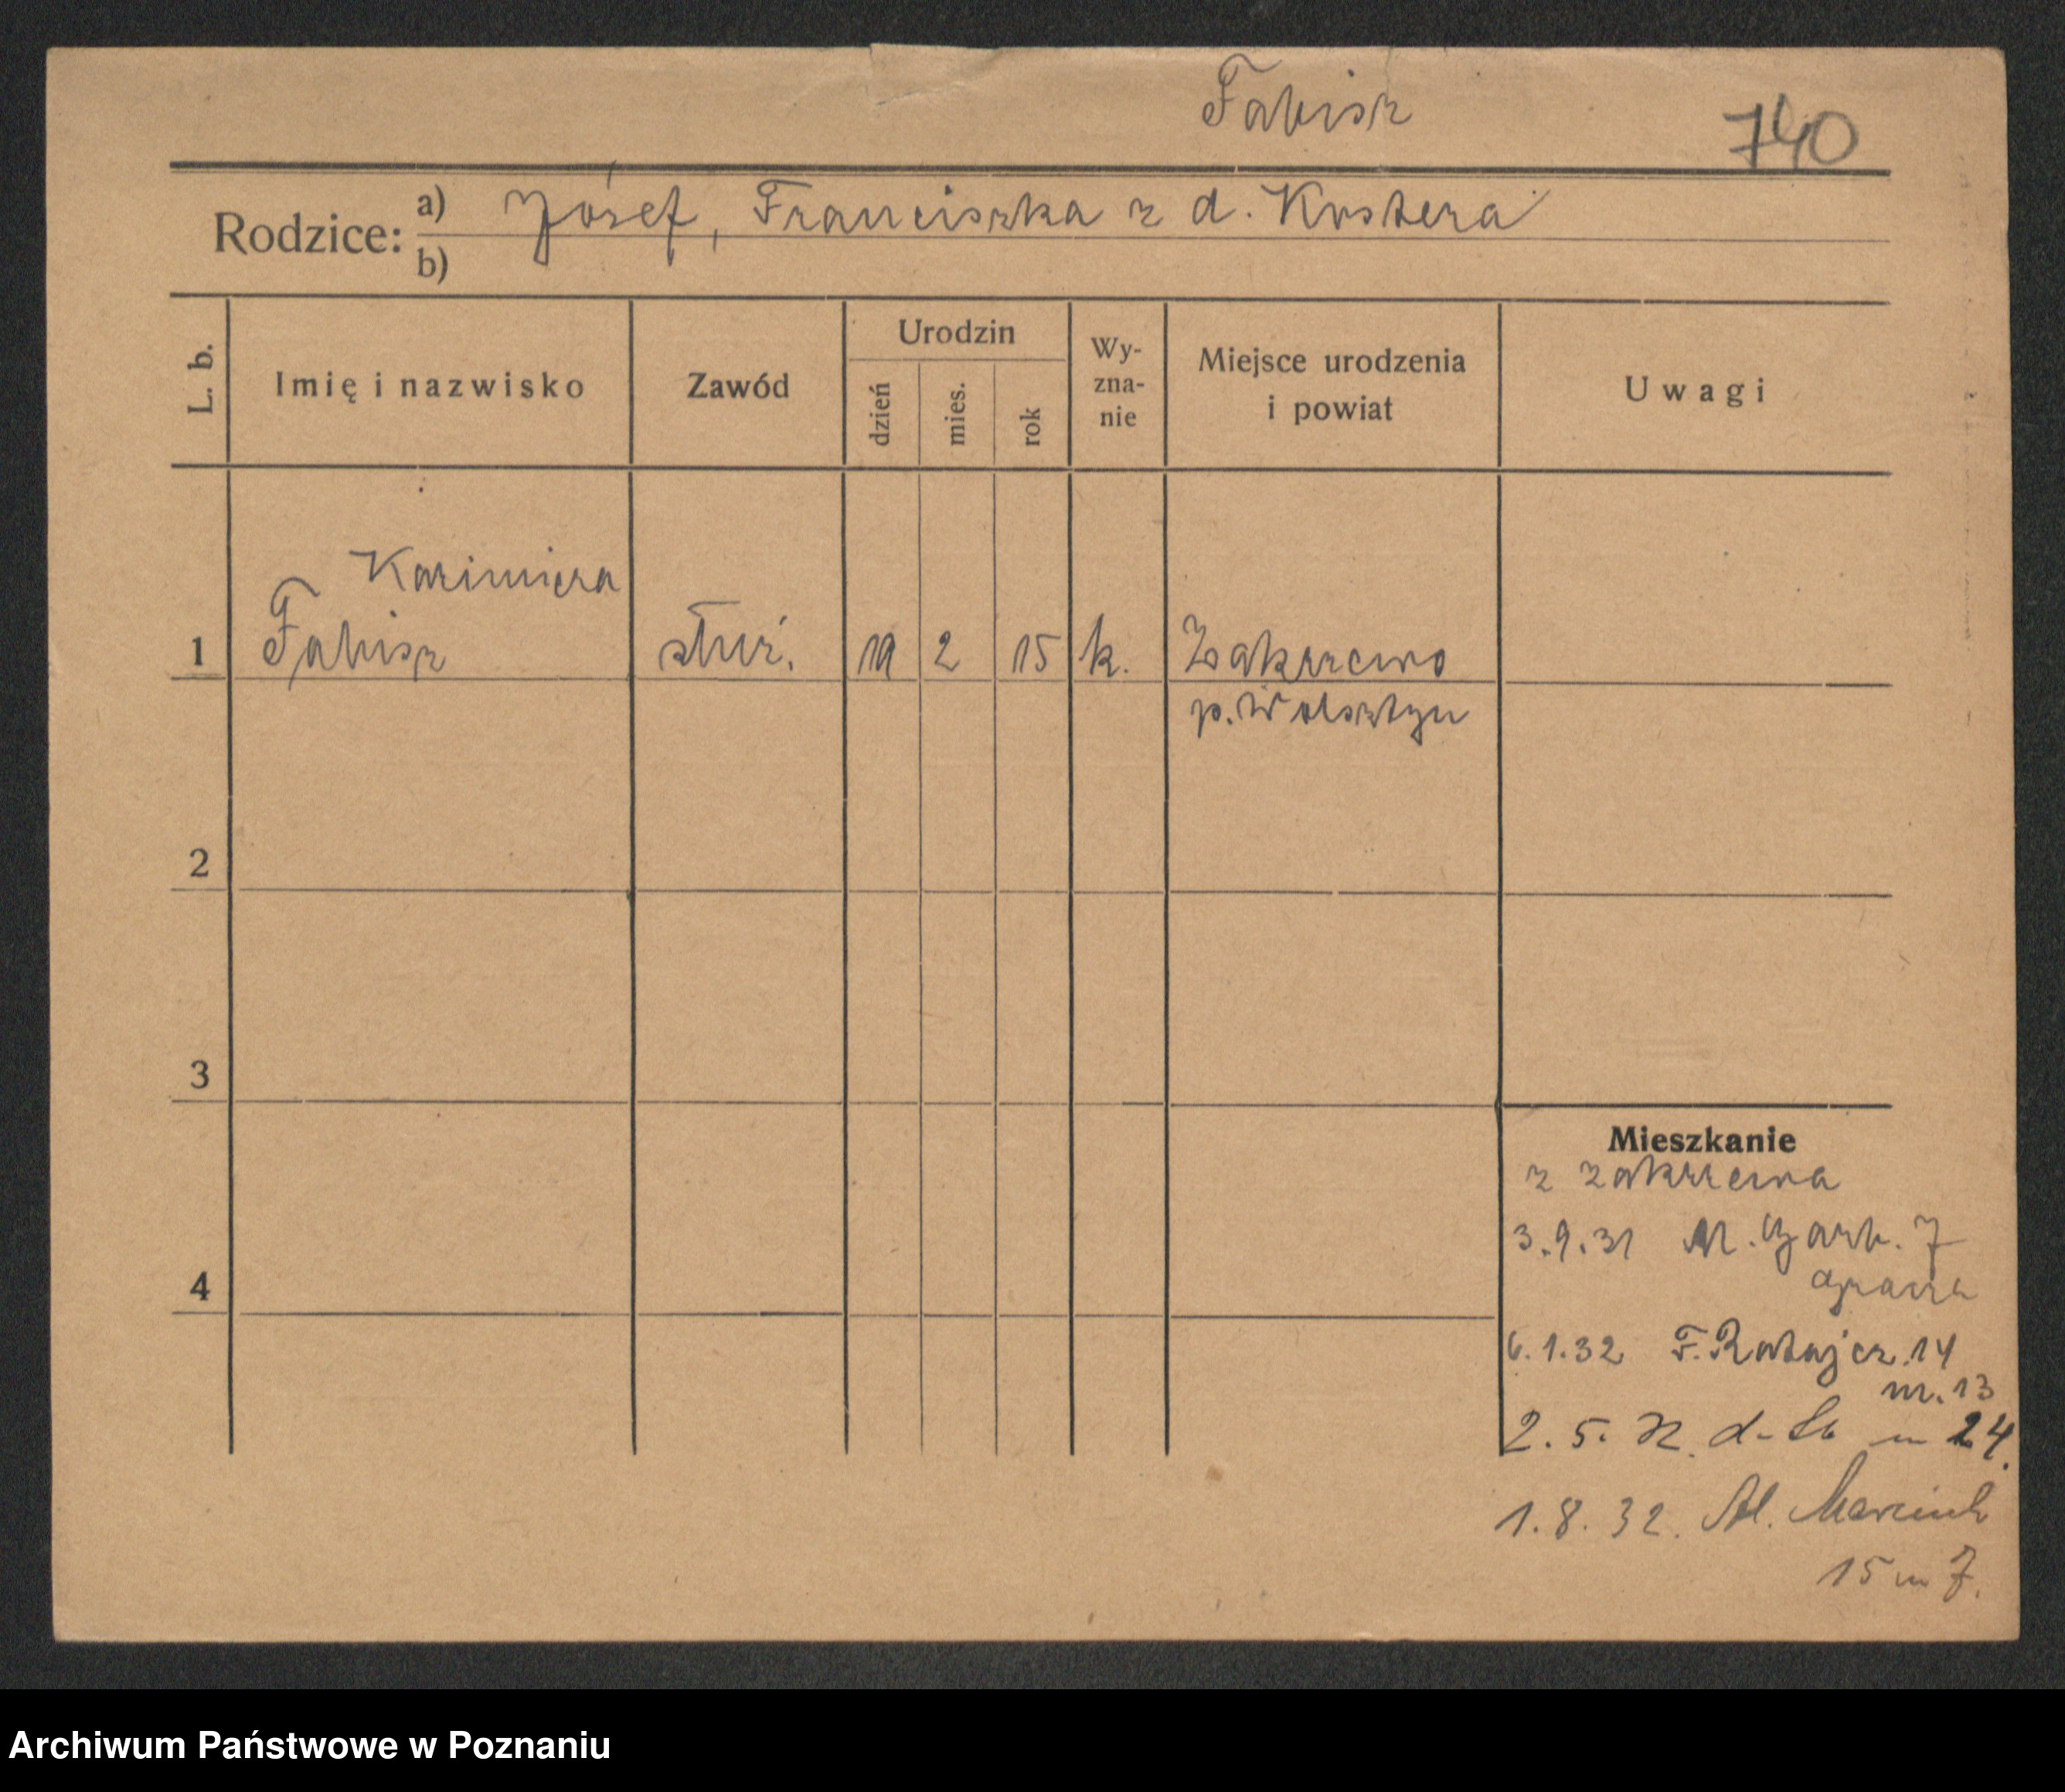 Fabisz
740
Rodzice: a) Józef, Franciszka z d. Kostera
b)
L. b.
Imię i nazwisko
Zawód
Urodzin
dzień
mies.
rok
Wy-
zna-
nie
Miejsce urodzenia
i powiat
Uwagi
Kazimiera
1 Fabisz służ. 19 2 15 k. Zakrzewo
p. Wolsztyn
2
3
4
Mieszkanie
z Zakrzewa
3.9.31 M. Garb. 7
6.1.32 F. Ratajcz. 14
m. 13
2. 5. 32. m 24.
1. 8. 32. Al. Marcink
15 m 7.
Archiwum Państwowe w Poznaniu